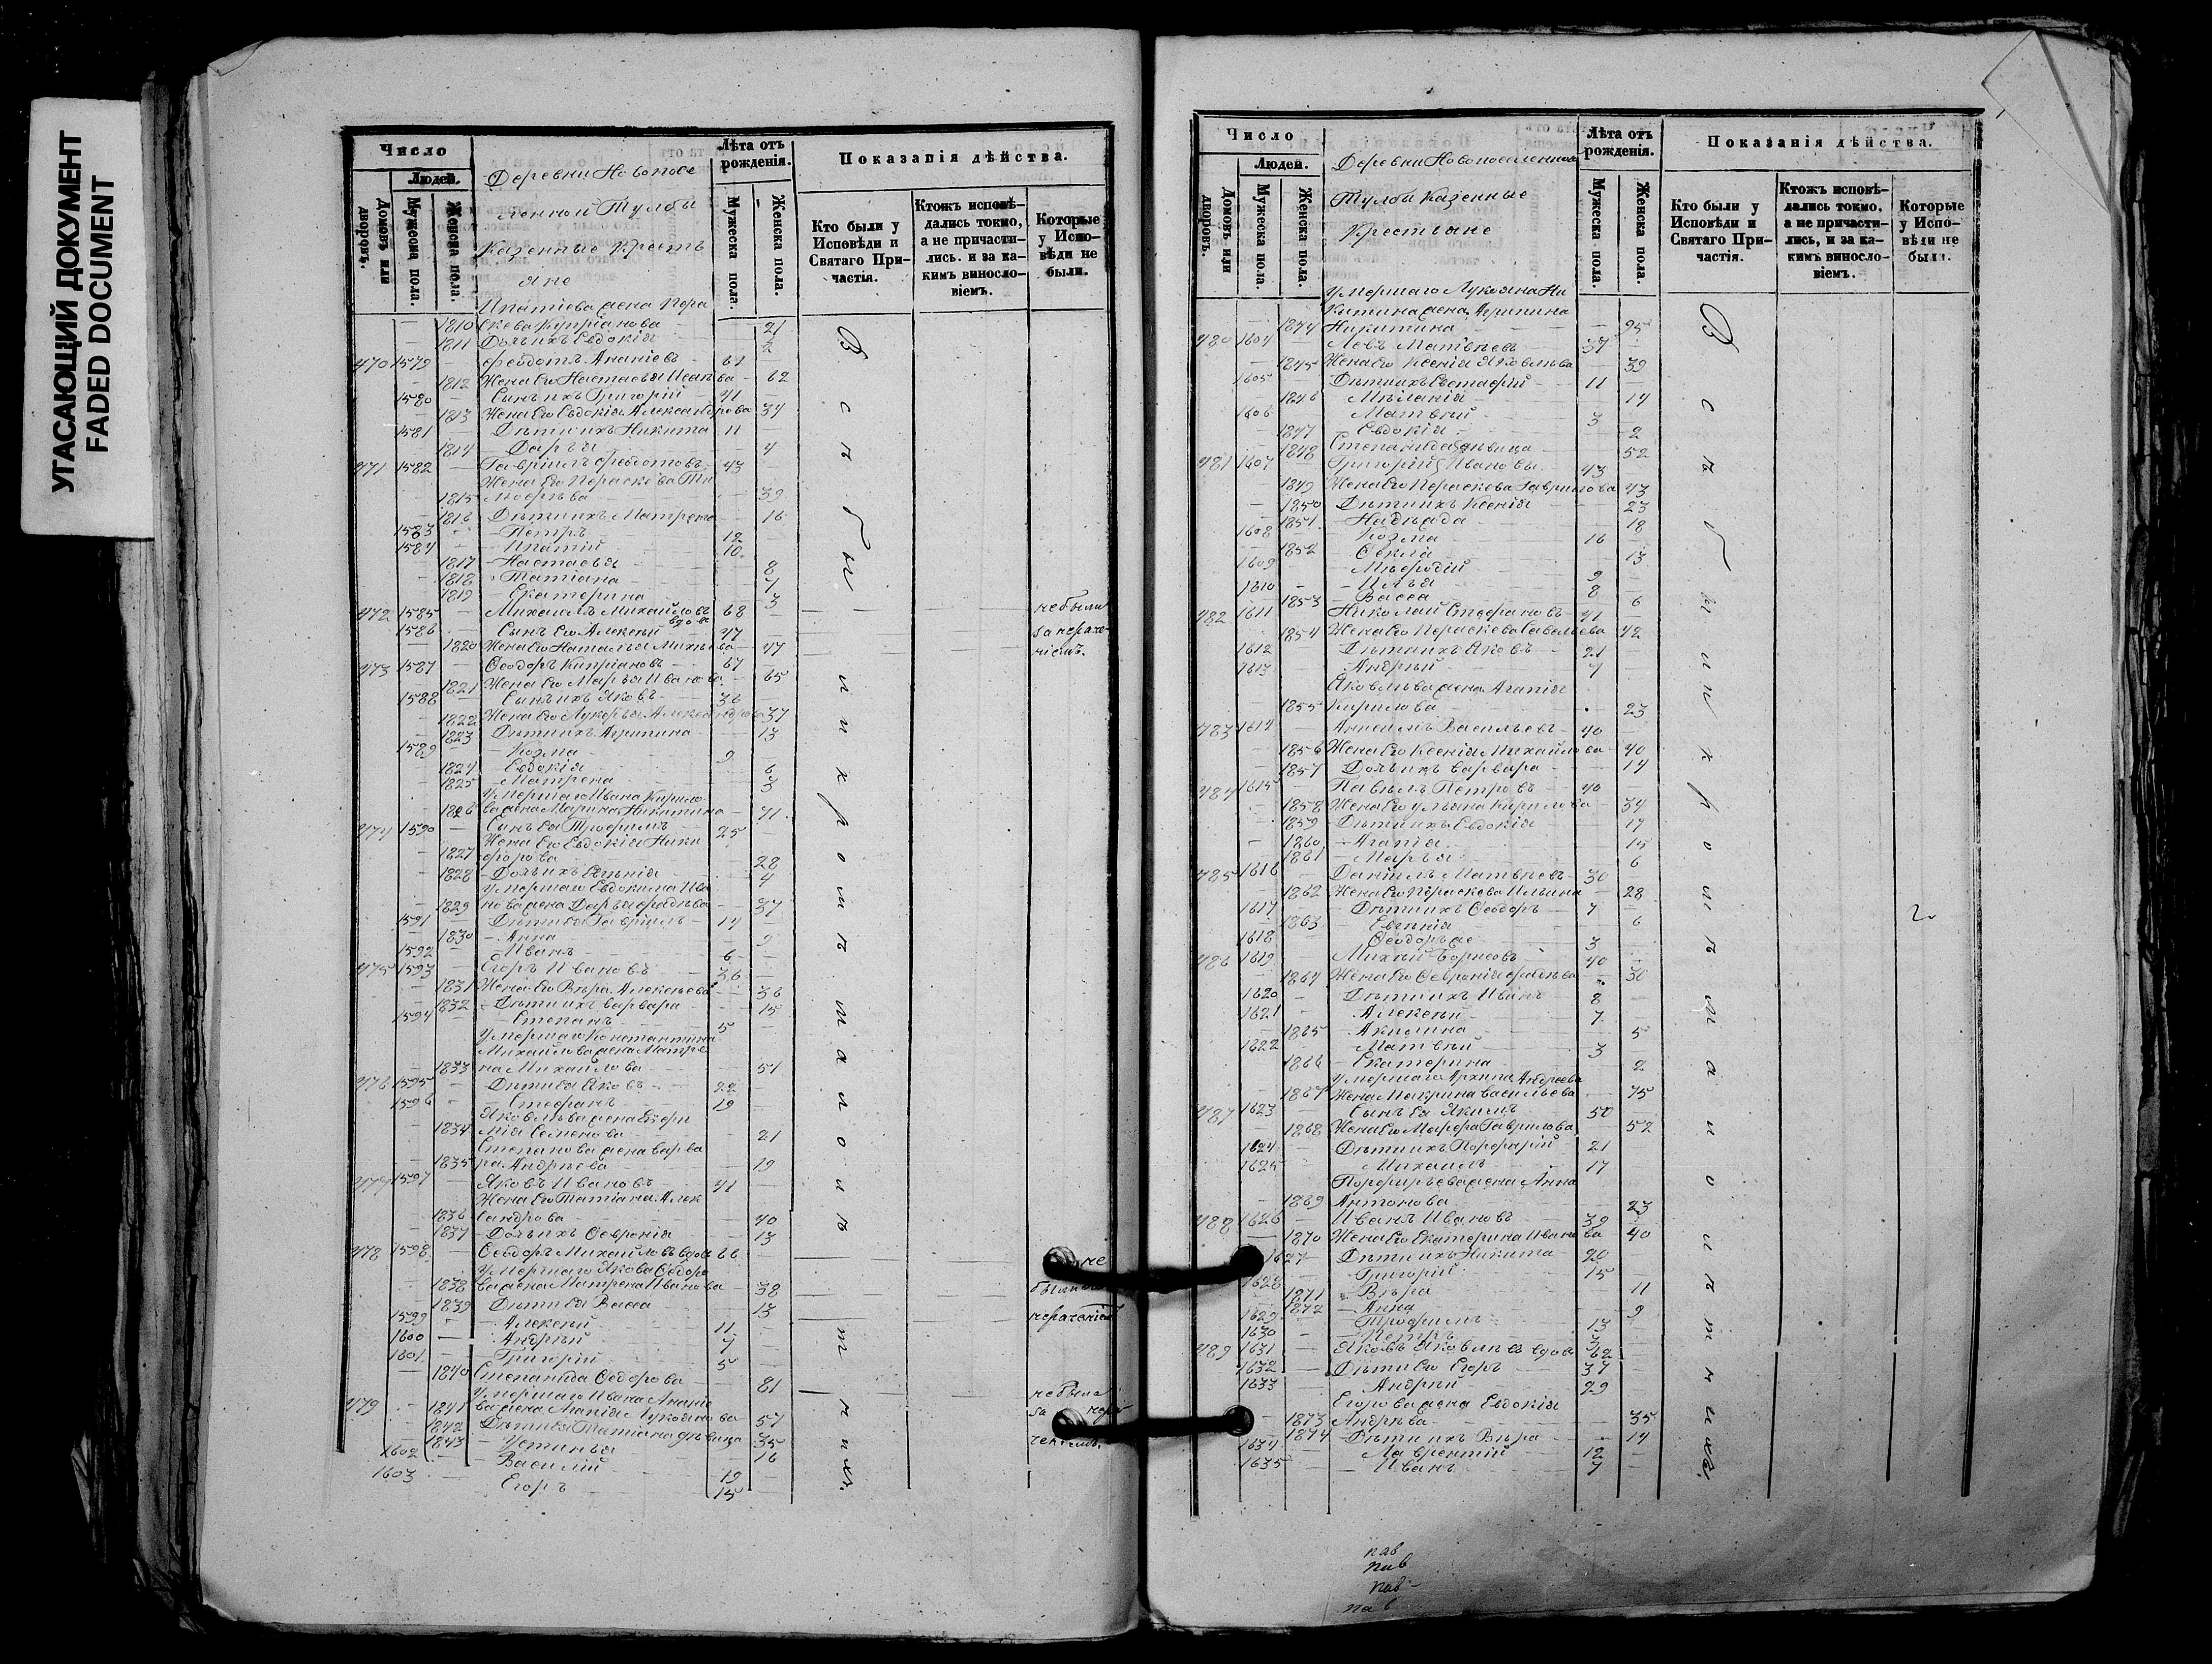 УГАСАЮЩИЙ ДОКУМЕНТ
FADED DOCUMENT
Число
Людей.
Домовъ или дворовъ.
Мужеска пола.
Женска пола.
Деревни Новопосе
ленной Тулбы
Казенные Кресть
яне
Лѣта отъ рожденія.
Мужеска пола.
Женска пола.
Показанія дѣйства.
Кто были у Исповѣди и Святаго Причастія.
Ктожъ исповѣдались токмо, а не причастились. и за какимъ винословіемъ.
Которые у Исповѣди не были.
Ипатіева жена Пора
1810 скева Купріанова 21
1811 Дочь ихъ Евдокія 2
470 1579 Феодотъ Ананіевъ 61
1812 Жена его Настасья Исаева 62
1580 Сынъ ихъ Григорій 41
1813 Жена его Евдокія Александрова 34
1581 Дѣти ихъ Никита 11
1814 Дарья 4
471 1582 Гавріилъ Феодотовъ 43
Жена его Пораскева Ти
1815 мофѣева 39
1816 Дѣти ихъ Матрена 16
1583 Петръ 12
1584 Ипатій 10
1817 Настасья 8
1818 Татіана 7
1819 Екатерина 3
472 1585 Михаилъ Михайловъ вдовъ 68 не были
1586 Сынъ его Алексѣй 47 за нераче
1820 Жена его Наталья Михѣева 47 ніемъ.
473 1587 Ѳеодоръ Кипріановъ 67
1821 Жена его Марья Иванова 65
1588 Сынъ ихъ Яковъ 36
1822 Жена его Лукерья Александрова 37
1823 Дѣти ихъ Агрипина 13
1589 Козма 9
1824 Евдокія 6
1825 Матрена 3
Умершаго Ивана Кирило
1826 ва жена Марина Никитина 71
474 1590 Сынъ ея Трофимъ 25
Жена его Евдокія Ники
1827 форова 28
1828 Дочь ихъ Евгенія 4
Умершаго Евдокима Ива
1829 нова жена Дарья Фадѣева 37
1591 Дѣти ея Гавріилъ 14
1830 Анна 9
1592 Иванъ 6
475 1593 Егоръ Ивановъ 36
1831 Жена его Вѣра Алексѣева 36
1832 Дѣти ихъ Варвара 15
1594 Степанъ 5
Умершаго Константина
Михайлова жена Матре
1833 на Михайлова 51
476 1595 Дѣти ея Яковъ 22
1596 Стефанъ 19
Яковлева жена Евфи
1834 мія Семенова 21
Степанова жена Варва
1835 ра Андрѣева 19
477 1597 Яковъ Ивановъ 41
Жена его Татіана Алек
1836 сандрова 40
1837 Дочь ихъ Февронія 13
478 1598 Ѳеодоръ Михайловъ вдовъ 66 не
Умершаго Якова Ѳедоро
1838 ва жена Матрена Иванова 38 были за
1839 Дѣти ея Васса 13
1599 Алексѣй 11 нераченіемъ
1600 Андрѣй 7
1601 Григорій 5
1840 Степанида Ѳедорова 81
Умершаго Ивана Ананіе не была
479 1841 ва жена Агапія Лукоянова 57 за нера
1842 Дѣти ея Татіана дѣвица 35
1843 Устинья 16 ченіемъ.
1602 Василій 19
1603 Егоръ 15
Всѣ были и кромѣ малолѣтнихъ.
Число
Людей.
Домовъ или дворовъ.
Мужеска пола.
Женска пола.
Деревни Новопоселенной
Тулбы Казенные
Крестьяне
Лѣта отъ рожденія.
Мужеска пола.
Женска пола.
Показанія дѣйства.
Кто были у Исповѣди и Святаго Причастія.
Ктожъ исповѣдались токмо, а не причастились, и за какимъ винословіемъ.
Которые у Исповѣди не были.
Умершаго Лукояна Ни
китина жена Агрипина
1844 Никитина 95
480 1604 Левъ Матвѣевъ 37
1845 Жена его Ксенія Яковлева 39
1605 Дѣти ихъ Евстафій 11
1846 Мѣланія 14
1606 Матвѣй 3
1847 Евдокія 2
1848 Степанида дѣвица 52
481 1607 Григорій Ивановы 43
1849 Жена его Пораскева Гаврилова 43
1850 Дѣти ихъ Ксенія 23
1851 Надежда 18
1608 Козма 16
1852 Ѳекла 13
1609 Мефодій 9
1610 Илья 8
1853 Васса 6
482 1611 Николай Стефановъ 41
1854 Жена его Пораскева Савельева 42
1612 Дѣти ихъ Яковъ 21
1613 Андрѣй 7
Яковлева жена Агапія
1855 Кирилова 23
483 1614 Анисимъ Васильевъ 40
1856 Жена его Ксенія Михайлова 40
1857 Дочь ихъ Варвара 14
484 1615 Павелъ Петровъ 40
1858 Жена его Ульяна Кирилова 34
1859 Дѣти ихъ Евдокія 17
1860 Агапія 15
1861 Марья 6
485 1616 Даніилъ Матвѣевъ 30
1862 Жена его Пораскева Ильина 28
1617 Дѣти ихъ Ѳеодоръ 7
1863 Евгенія 6
1618 Ѳеодоръ же 3
486 1619 Михѣй Борисовъ 40
1864 Жена его Февронія Фадѣева 30
1620 Дѣти ихъ Иванъ 8
1621 Алексѣй 7
1865 Акилина 5
1622 Матвѣй 3
1866 Екатерина 2
Умершаго Архипа Андреева
1867 Жена Макрина Васильева 75
487 1623 Сынъ ея Якимъ 50
1868 Жена его Марфа Гаврилова 52
1624 Дѣти ихъ Порфирій 21
1625 Михаилъ 17
Порфирьева жена Анна
1869 Антонова 23
488 1626 Иванъ Ивановъ 39
1870 Жена его Екатерина Иванова 40
1627 Дѣти ихъ Никита 20
1628 Григорій 15
1871 Вѣра 11
1872 Анна 9
1629 Трофимъ 13
1630 Петръ 3
489 1631 Яковъ Яковлевъ вдовъ 62
1632 Дѣти его Егоръ 37
1633 Андрѣй 29
Егорова жена Евдокія
1873 Андрѣева 35
1874 Дѣти ихъ Вѣра 14
1634 Лаврентій 12
1635 Иванъ 7
Всѣ были и кромѣ малолѣтнихъ.
пав
пав
пав
пав